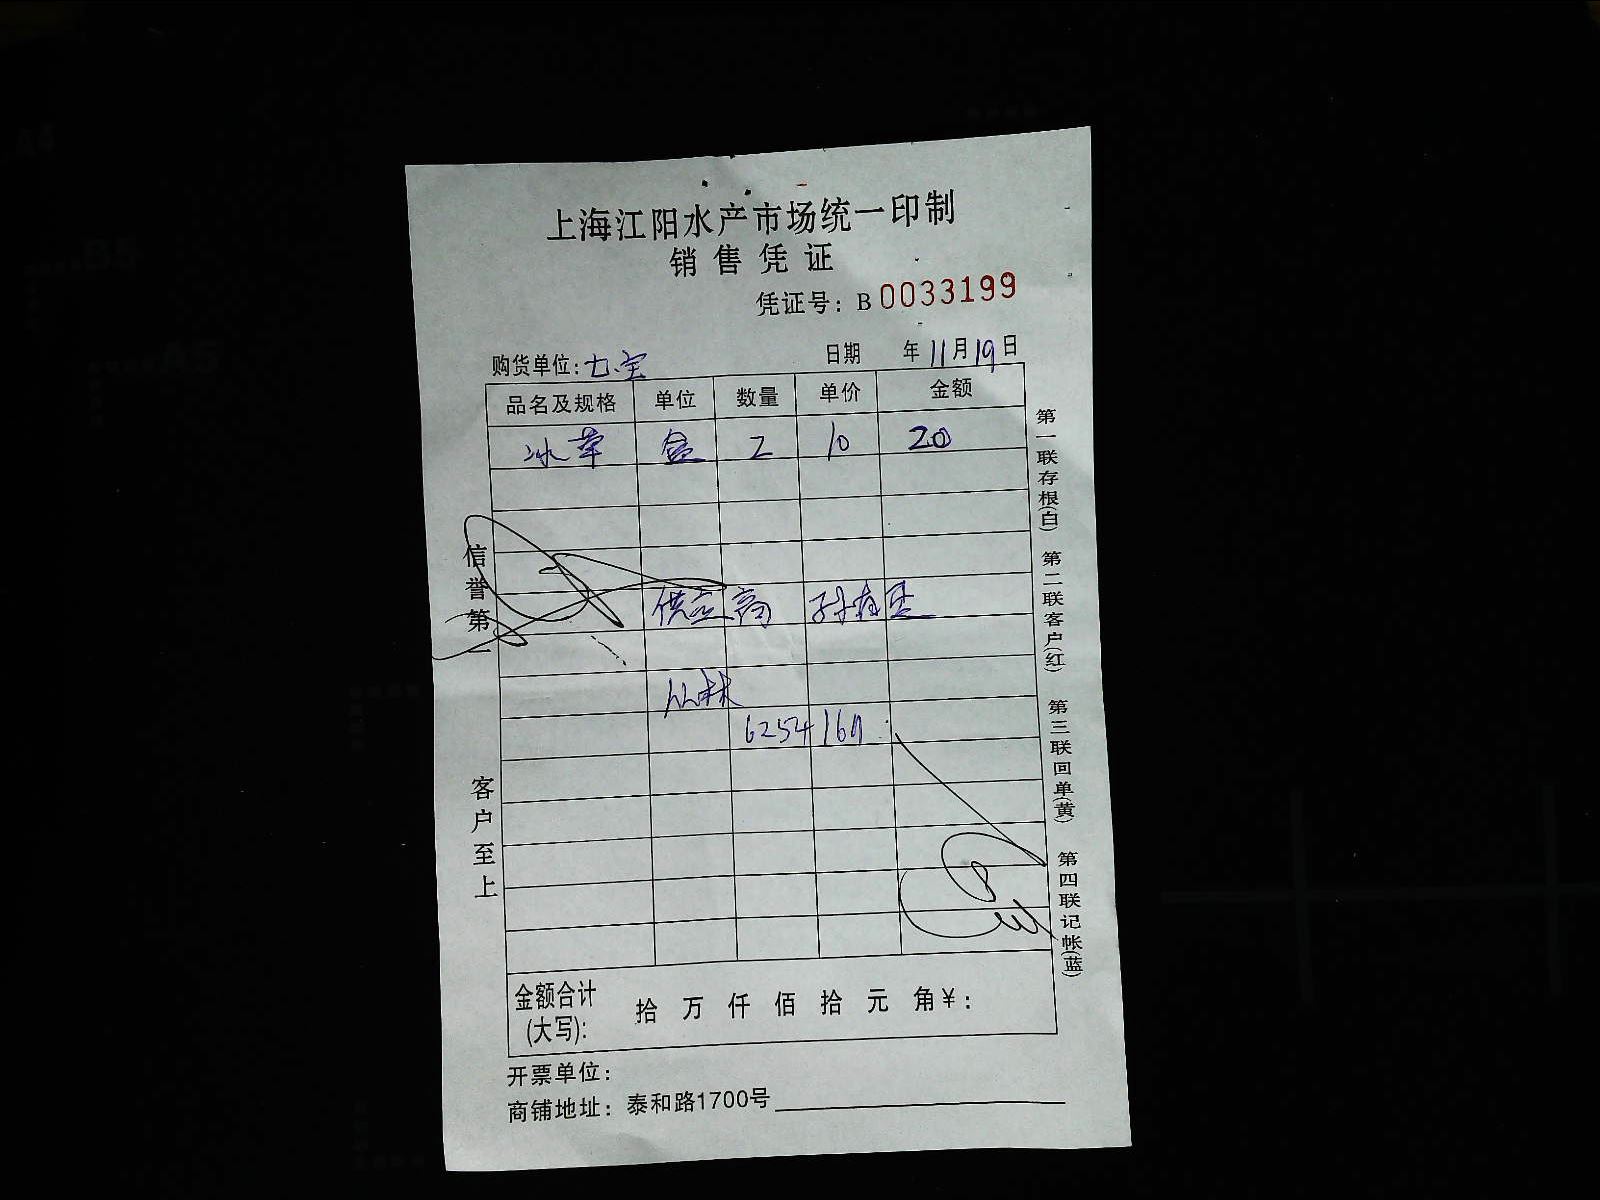 上海江阳水产市场统一印制
销售凭证
凭证号：B 0033199
购货单位：七宝 日期 年11月19日
品名及规格 单位 数量 单价 金额
冰草 盒 2 10 20
供应商 孙
丛林
6254
金额合计(大写)： 拾 万 仟 佰 拾 元 角 ¥：
开票单位：
商铺地址：泰和路1700号
信誉第一 客户至上
第一联存根(白) 第二联客户(红) 第三联回单(黄) 第四联记帐(蓝)